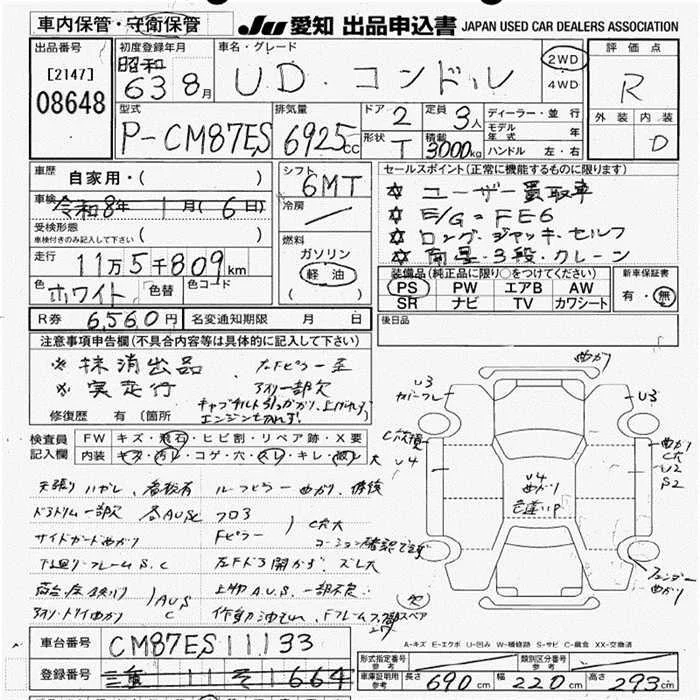 車内保管・守衛保管
JU 愛知 出品申込書 JAPAN USED CAR DEALERS ASSOCIATION
出品番号
[2147]
08648
初度登録年月
昭和
63 8月
車名・グレード
UD・コンドル
2WD
4WD
評価点
R
外装 内装
D
型式
P-CM87ES
排気量
6925cc
ドア 2
定員 3人
形状 T
積載 3000kg
ディーラー・並行
モデル年式 年
ハンドル 左・右
車歴
自家用・( )
車検
令和8年 1月(6日)
受検形態
車検付きのみ記入して下さい ( )
走行
11万5千809km
色 ホワイト 色替 色コード
R券 6,560円 名変通知期限 月 日
シフト
6MT
冷房
燃料
ガソリン
軽油
( )
セールスポイント(正常に機能するものに限ります)
☆ ユーザー買取車
☆ E/G=FE6
☆ ロング・ジャッキ・セルフ
☆ 南星・3段・クレーン
装備品(純正品に限り○をつけてください)
PS PW エアB AW
SR ナビ TV カワシート
新車保証書
有・無
後日品
注意事項申告欄(不具合内容等は具体的に記入して下さい)
※ 抹消出品
※ 実走行
左Fピラー歪
一部欠
キャブチルト引っかかり、上がれず
エンジンかかれず!
修復歴 有 (箇所
検査員記入欄
FW キズ・飛石・ヒビ割・リペア跡・X要
内装 キズ・汚レ・コゲ・穴・スレ・キレ・破レ 大
天張りハガレ
ルーフピラー曲がり、修復
ドアトリム一部欠 各AUSC フロア
サイドガード曲がり Fピラー
C穴大
コーション確認できず
下廻り・フレームS.C 左Fドア開かず ズレ大
AUS
C
上物A.U.S. 一部不良
作動油モレ
曲がり
U3
U3
C穴
U4
U4
曲がり
曲がり
C穴
U2
S2
フェンダー
曲がり
欠
スペア
A-キズ E-エクボ U-凹み W-補修跡 S-サビ C-腐食 XX-交換済
車台番号 CM87ES11133
登録番号 三重 11 そ 1664
形式指定番号 参考
類別区分番号 参考
車庫証明用参考 長さ 690cm 幅 220cm 高さ 293cm